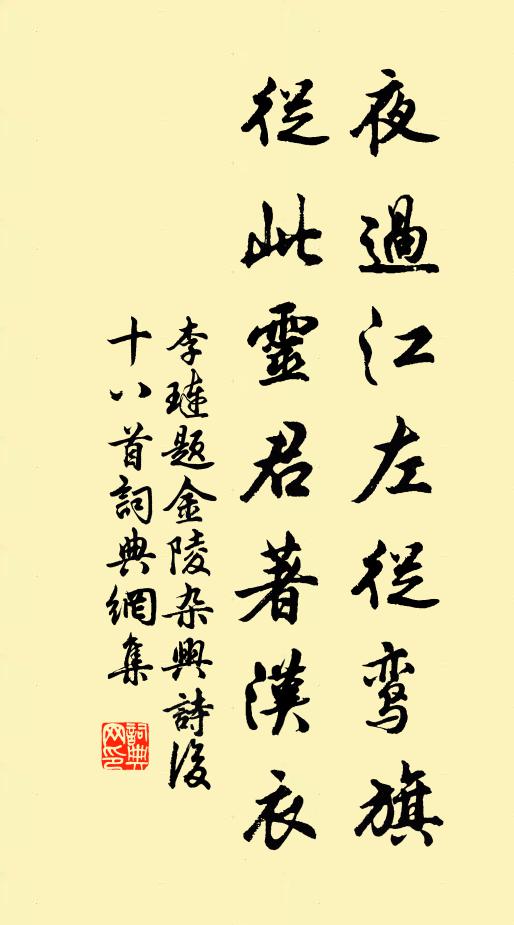 夜過江左從鸞旗
從此靈君著漢衣
李璉題金陵杂興詩後
十八首詞典網集
詞典网印